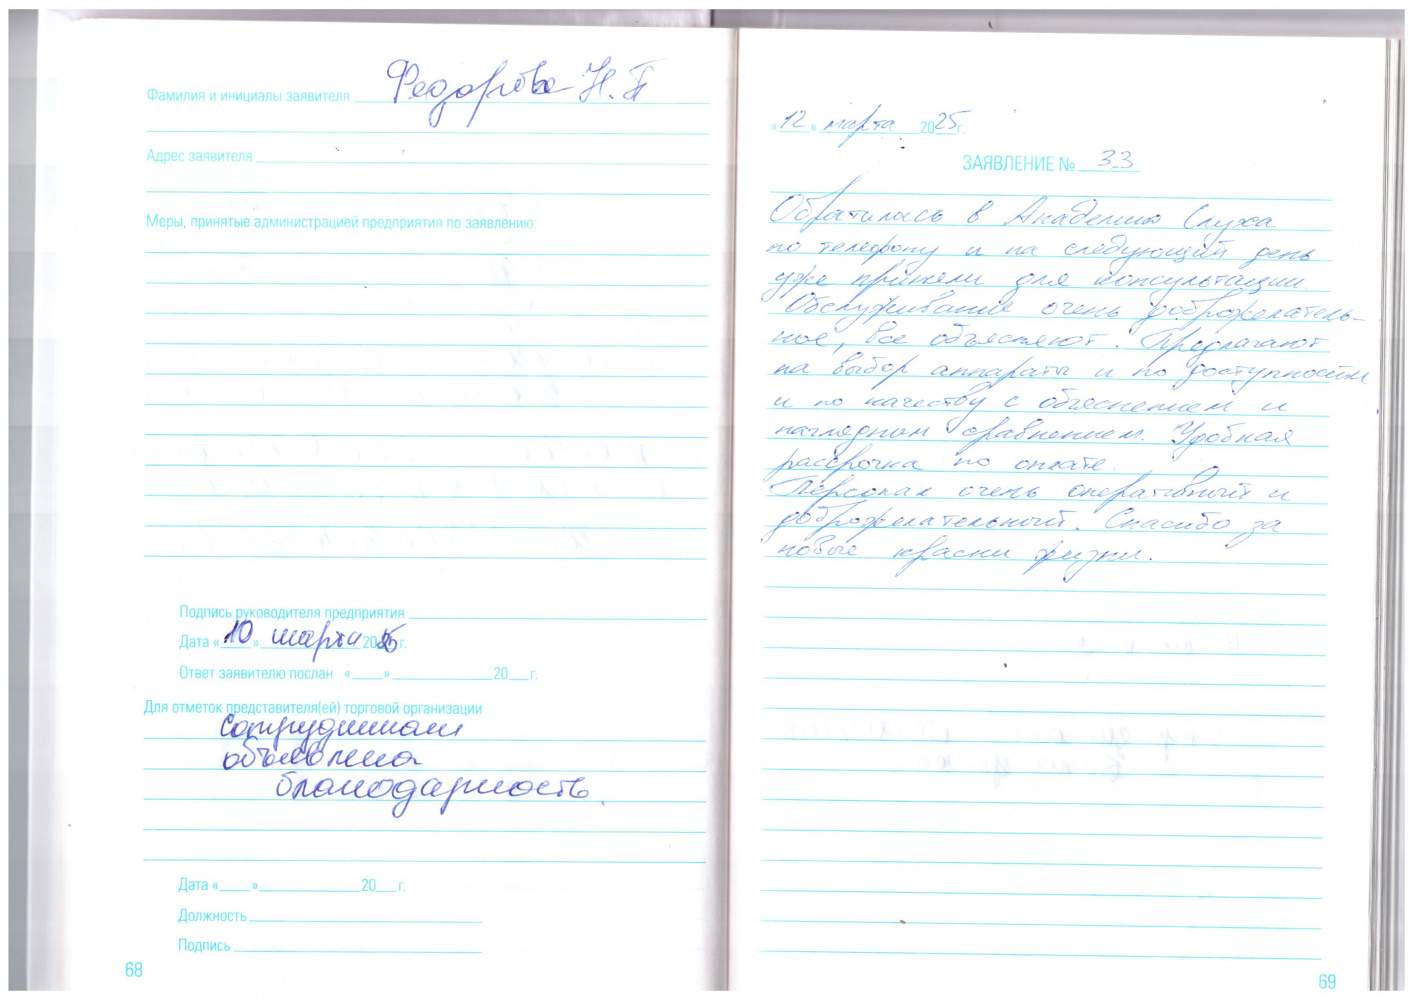 Фамилия и инициалы заявителя Федорова Н.П
Адрес заявителя
Меры, принятые администрацией предприятия по заявлению:
Подпись руководителя предприятия
Дата «10» марта 2025 г.
Ответ заявителю послан «___» ___ 20__г.
Для отметок представителя(ей) торговой организации
сотрудникам
объявлена
благодарность.
Дата «___» ___ 20__ г.
Должность
Подпись
68
«12» марта 2025г.
ЗАЯВЛЕНИЕ № 33
Обратились в Академию Слуха
по телефону и на следующий день
уже приняли для консультации.
Обслуживание очень доброжелатель-
ное, все объясняют. Предлагают
на выбор аппараты и по доступности
и по качеству с объяснением и
наглядном сравнением. Удобная
рассрочка по оплате.
Персонал очень оперативный и
доброжелательный. Спасибо за
новые краски жизни.
69